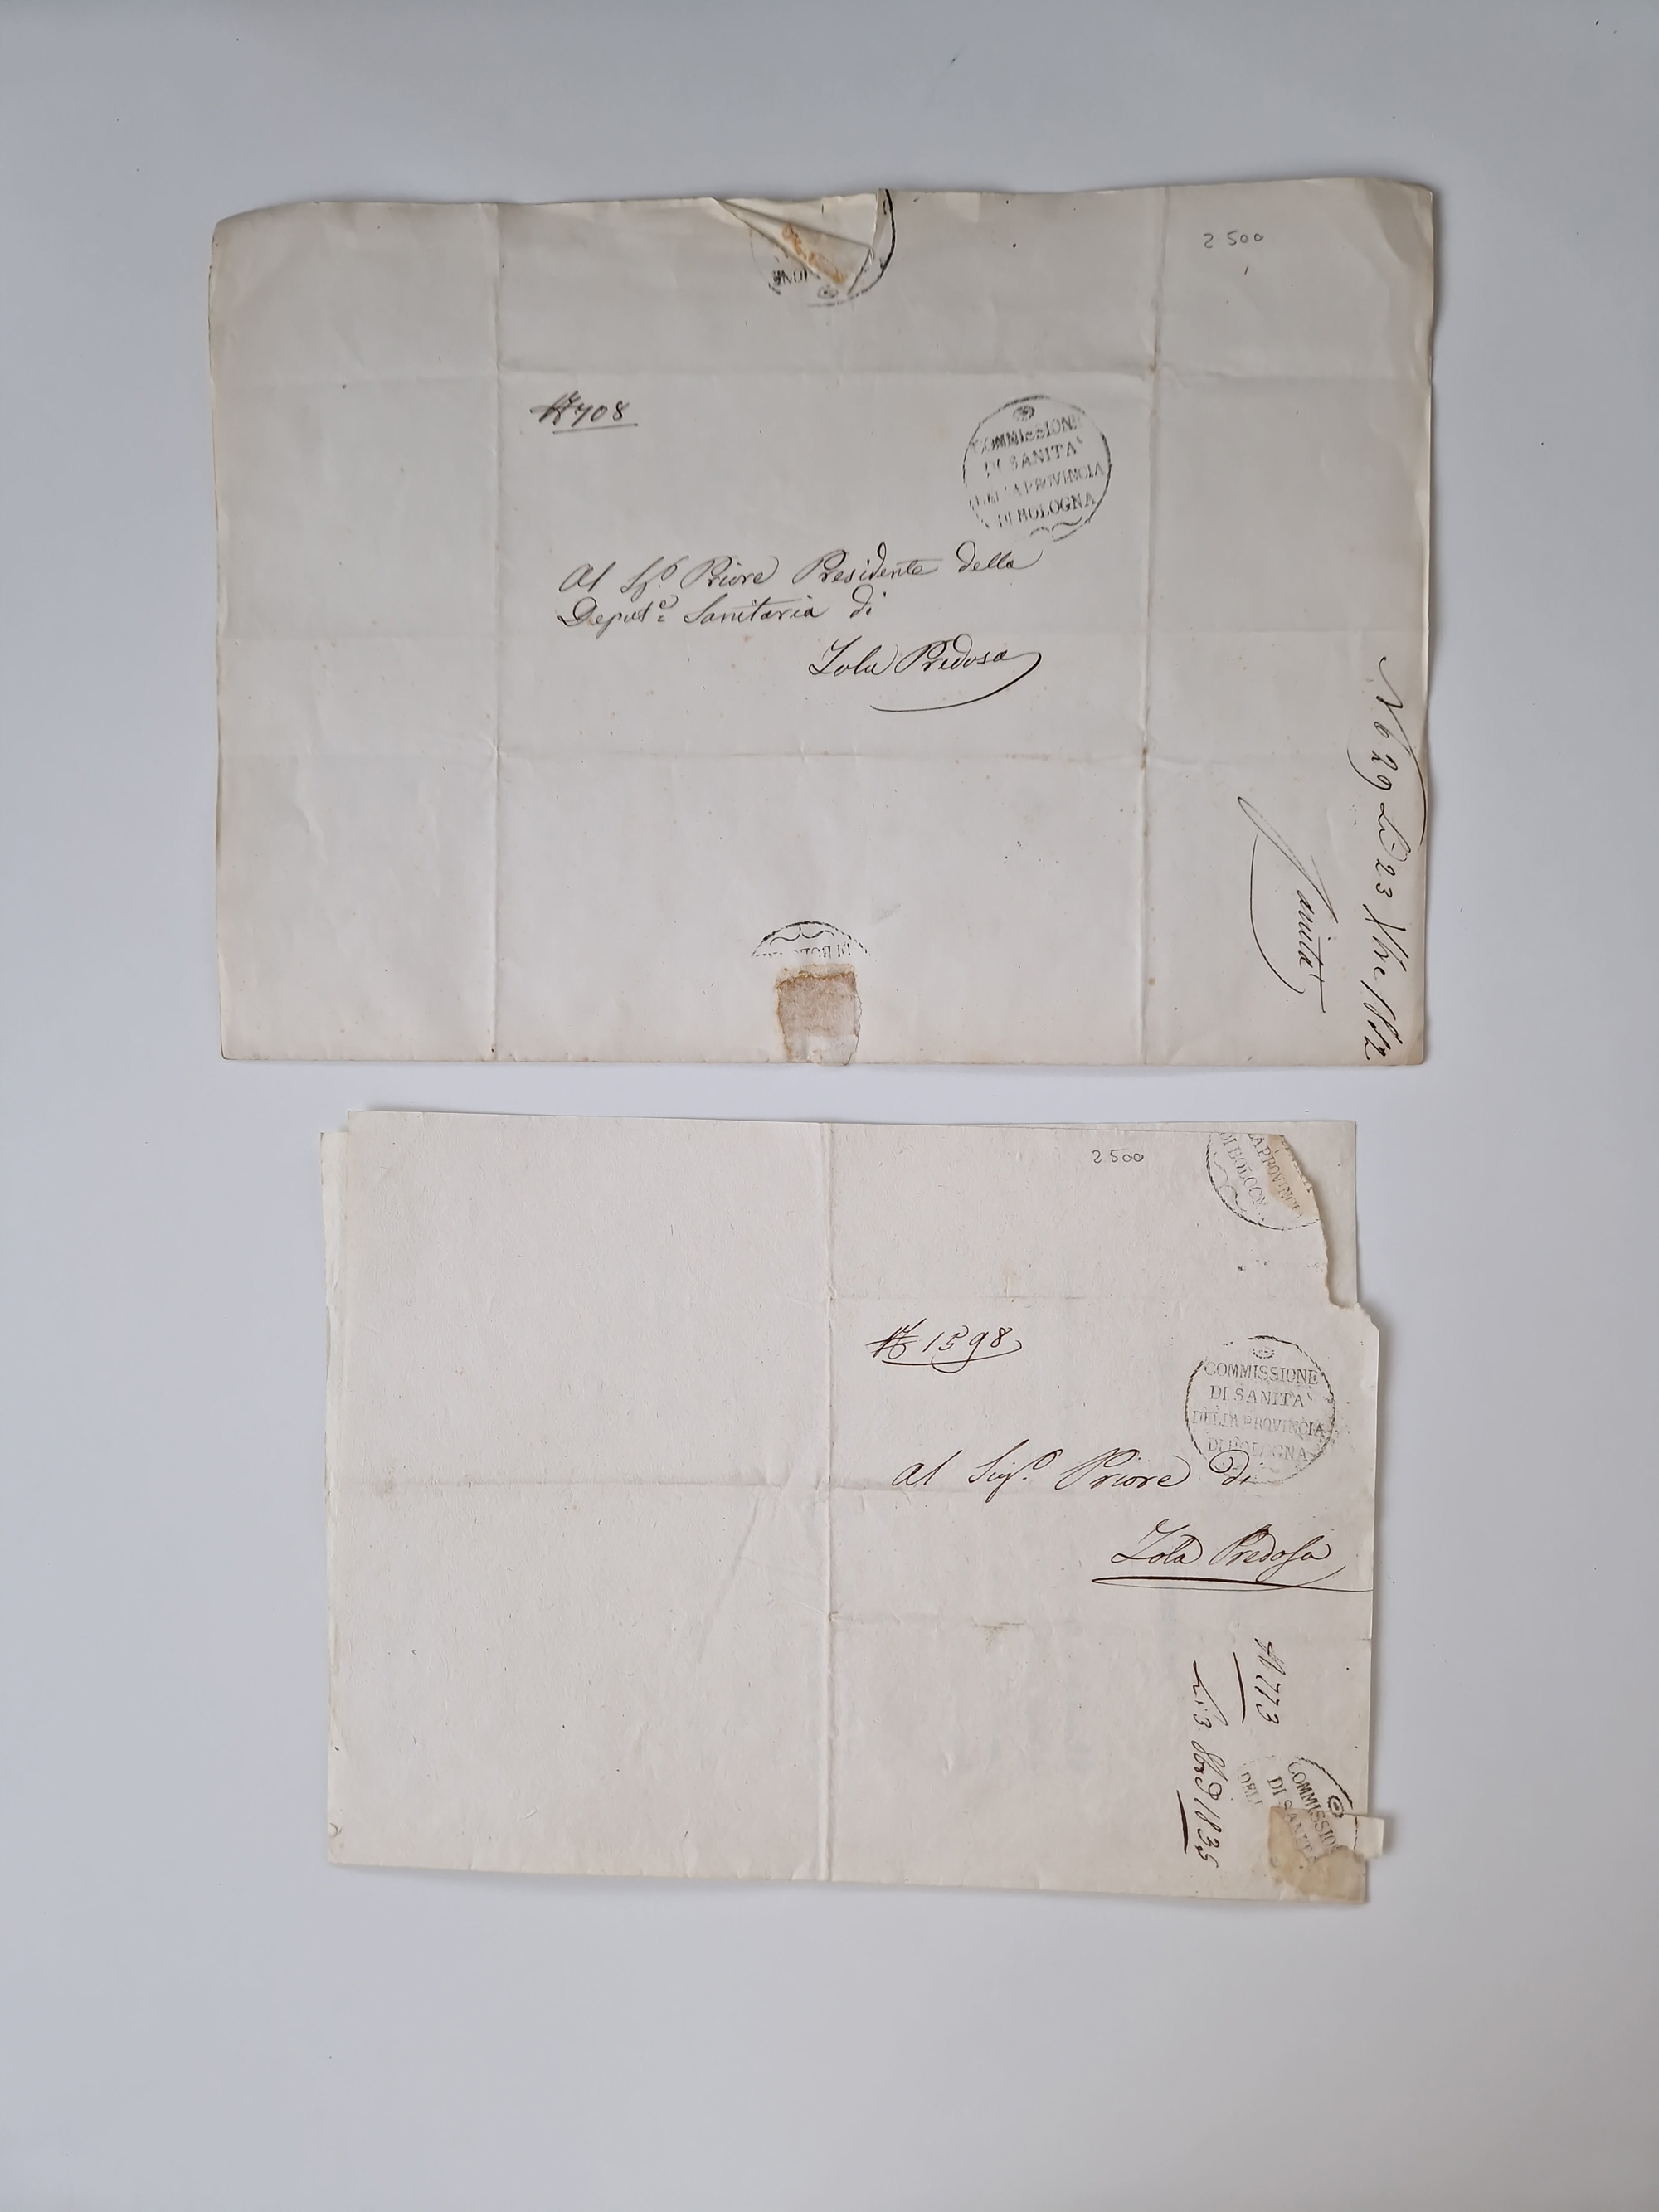 2 500
IONE
N° 708
COMMISSIONE
DI SANITA'
DELLA PROVINCIA
DI BOLOGNA
Al Sigr. Priore Presidente della
Deput.e Sanitaria di
Zola Predosa
N 629 Li 23 Xbre 1832
Sanità
DI BOLO
2 500
LA PROVINCIA
DI BOLOGN
N° 1598
COMMISSIONE
DI SANITA'
DELLA PROVINCIA
DI BOLOGNA
Al Sigr. Priore di
Zola Predosa
N 773
Li 3 8bre 1835
COMMISSION
DI SANIT
DELL